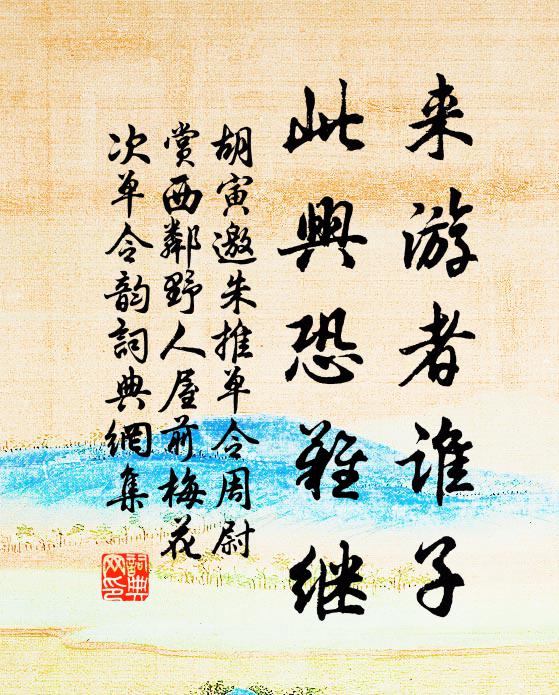 来游者谁子
此興恐難继
胡寅邀朱推单令周尉
赏西鄰野人屋前梅花
次单令韵詞典網集
詞典
网印